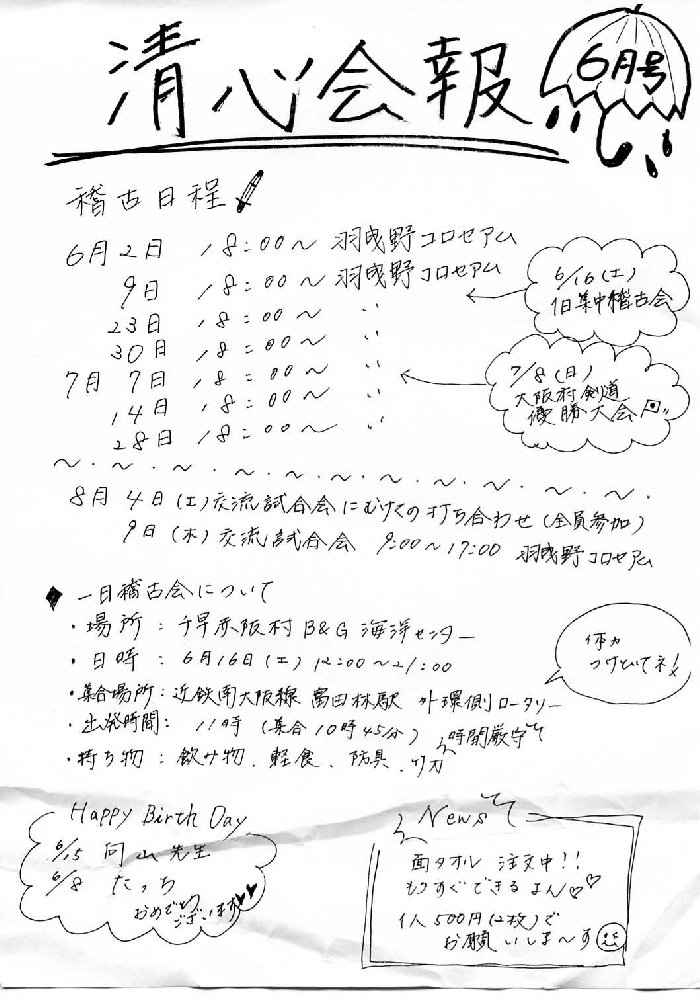 清心会報
6月号
稽古日程
6月2日 18:00〜 羽曳野コロセアム
9日 18:00〜 羽曳野コロセアム
23日 18:00〜 〃
30日 18:00〜 〃
7月7日 18:00〜 〃
14日 18:00〜 〃
28日 18:00〜 〃
6/16(土)
1日集中稽古会
7/8(日)
大阪府剣道
優勝大会
8月4日(土)交流試合会にむけての打ち合わせ(全員参加)
9日(木)交流試合会 9:00〜17:00 羽曳野コロセアム
◆一日稽古会について
・場所:千早赤阪村B&G海洋センター
・日時:6月16日(土)12:00〜21:00
・集合場所:近鉄南大阪線 富田林駅 外環側ロータリー
・出発時間:11時(集合10時45分) 時間厳守
・持ち物:飲み物、軽食、防具、竹刀
体力
つけといてネ!
Happy Birth Day
6/15 向山先生
6/8 たっち
おめでとう
ございます
News
面タオル 注文中!!
もうすぐできるよん
1人500円(2枚)で
お願いしま〜す